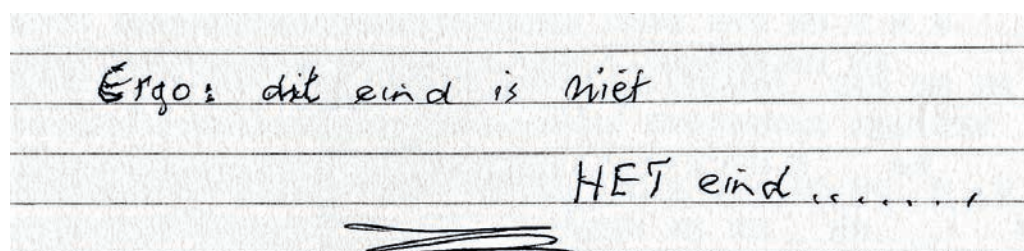 Ergo: dit eind is niet
HET eind.......